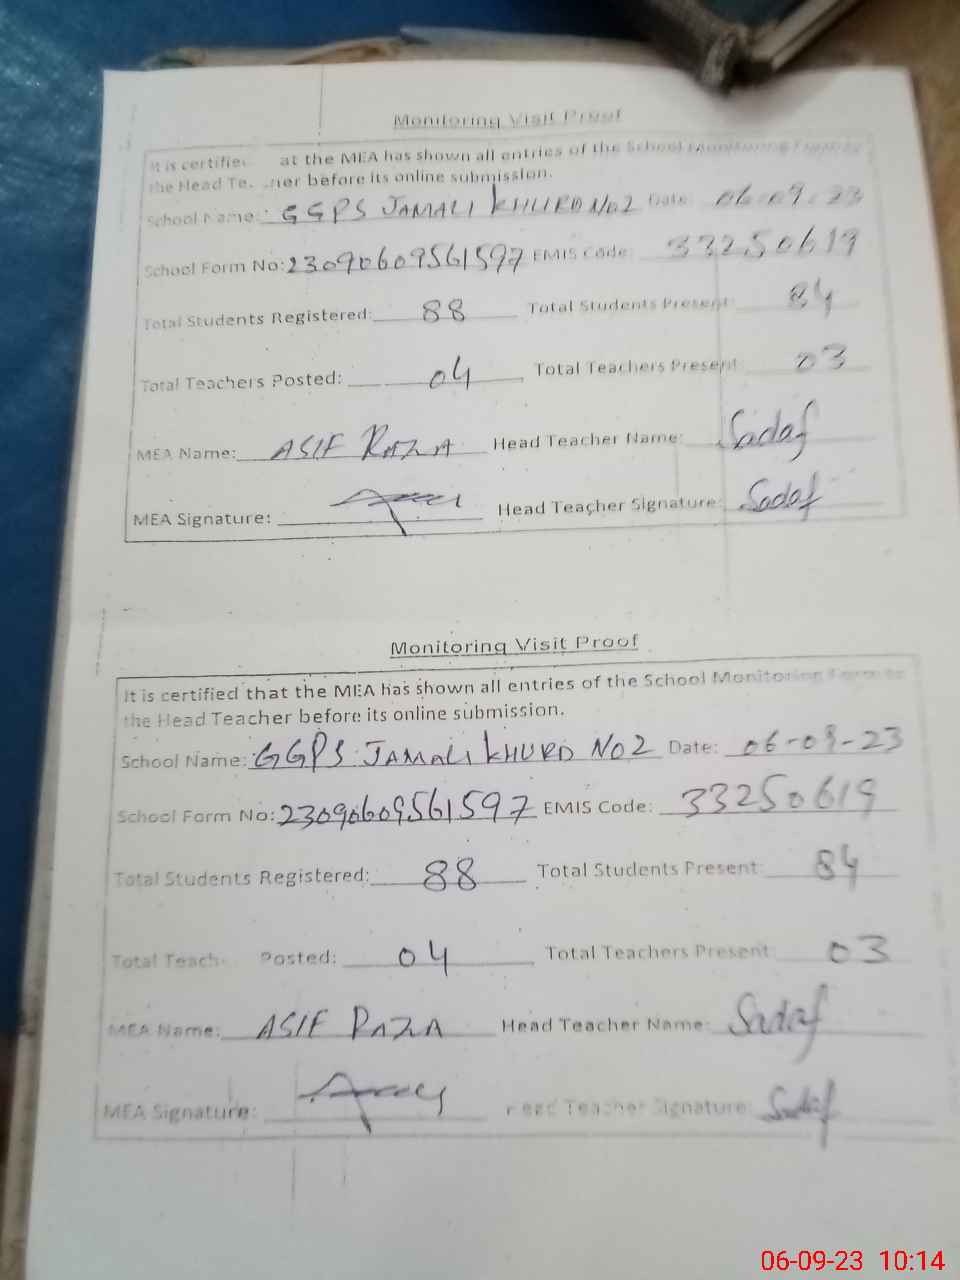 Monitoring Visit Proof
It is certified at the MEA has shown all entries of the School Monitoring
the Head Te. .ner before its online submission.
School Name: GGPS JAMALI KHURD No2 Date: 06-09-23
School Form No: 23090609561597 EMIS Code: 33250619
Total Students Registered: 88 Total Students Present: 84
Total Teachers Posted: 04 Total Teachers Present: 03
MEA Name: ASIF RAZA Head Teacher Name: Sadaf
MEA Signature: Head Teacher Signature: Sadaf
Monitoring Visit Proof
It is certified that the MEA has shown all entries of the School Monitoring Form to
the Head Teacher before its online submission.
School Name: GGPS JAMALI KHURD No2 Date: 06-09-23
School Form No: 23090609561597 EMIS Code: 33250619
Total Students Registered: 88 Total Students Present: 84
Total Teach Posted: 04 Total Teachers Present: 03
MEA Name: ASIF RAZA Head Teacher Name: Sadaf
MEA Signature: Head Teacher Signature: Sadaf
06-09-23 10:14